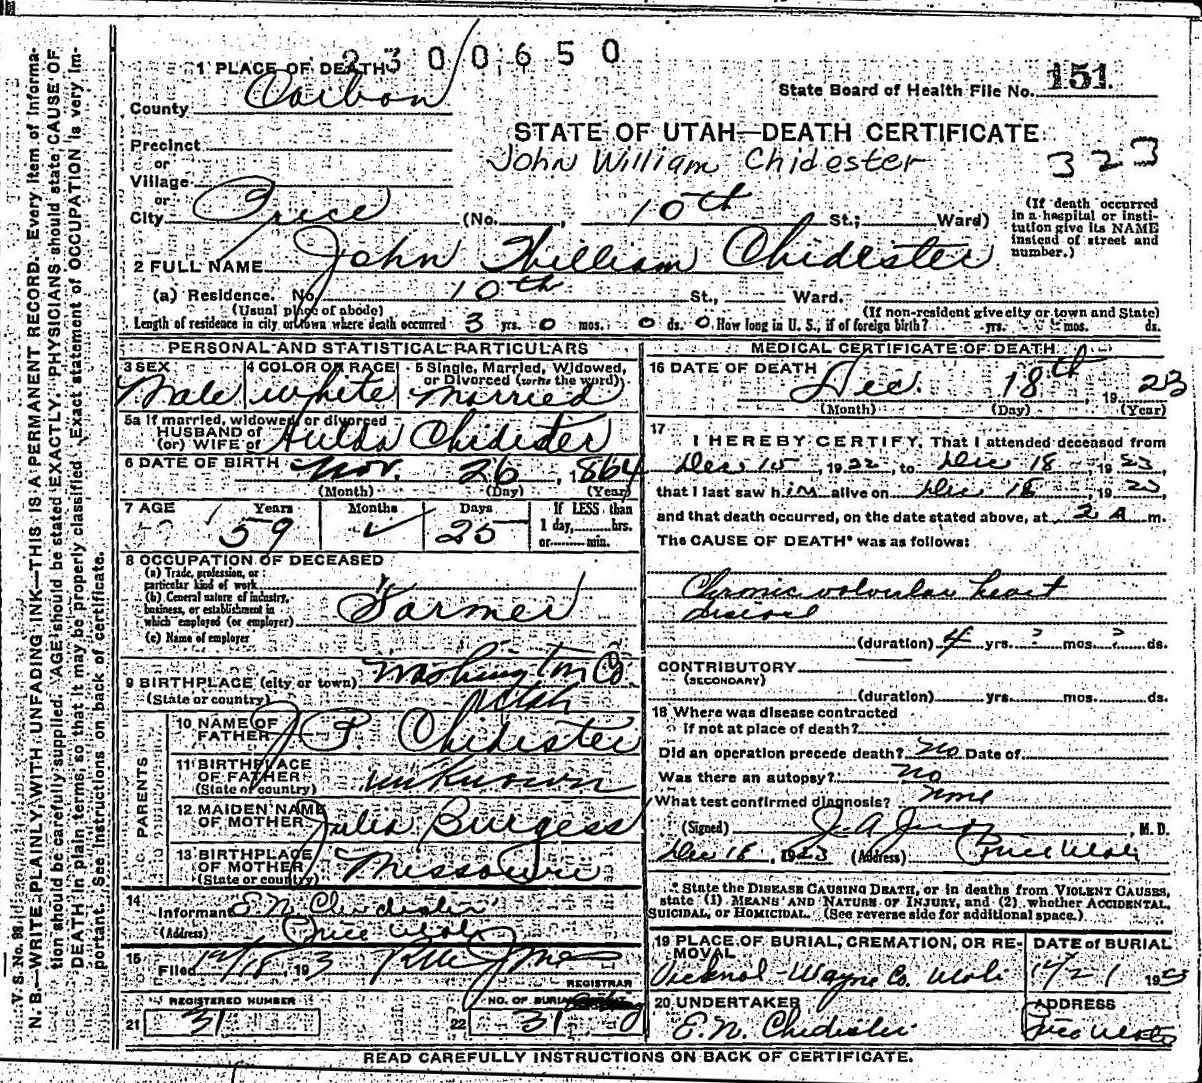 2300650
1 PLACE OF DEATH
County Carbon
State Board of Health File No. 151
STATE OF UTAH—DEATH CERTIFICATE
Precinct
John William Chidester 323
or
Village
or
City Price (No. , 10th St.; Ward)
(If death occurred in a hospital or insti-
tution give its NAME
instead of street and
number.)
2 FULL NAME John William Chidester
(a) Residence. No. 10th St., Ward.
(Usual place of abode) (If non-resident give city or town and State)
Length of residence in city or town where death occurred 3 yrs. 0 mos. 0 ds. 0 How long in U. S., if of foreign birth? yrs. mos. ds.
PERSONAL AND STATISTICAL PARTICULARS
3 SEX 4 COLOR OR RACE 5 Single, Married, Widowed,
or Divorced (write the word)
Male white Married
5a If married, widowed or divorced
HUSBAND of
(or) WIFE of Hulda Chidester
6 DATE OF BIRTH Nov. 26, 1864
(Month) (Day) (Year)
7 AGE Years Months Days If LESS than
1 day, hrs.
or min.
59 25
8 OCCUPATION OF DECEASED
(a) Trade, profession, or
particular kind of work
(b) General nature of industry,
business, or establishment in
which employed (or employer) Farmer
(c) Name of employer
9 BIRTHPLACE (city or town) Washington Co.
(State or country) Utah
PARENTS
10 NAME OF
FATHER J P Chidester
11 BIRTHPLACE
OF FATHER unknown
(State or country)
12 MAIDEN NAME
OF MOTHER Julia Burgess
13 BIRTHPLACE
OF MOTHER Missouri
(State or country)
14
Informant E. N. Chidester
(Address) Price Utah
15
Filed 12/18, 193
REGISTRAR
REGISTERED NUMBER NO. OF BURIAL
21 31 22 31
MEDICAL CERTIFICATE OF DEATH
16 DATE OF DEATH Dec. 18th, 1923
(Month) (Day) (Year)
17
I HEREBY CERTIFY, That I attended deceased from
Dec 15, 1922, to Dec 18 1923,
that I last saw him alive on Dec 18, 1923
and that death occurred, on the date stated above, at 2 A m.
The CAUSE OF DEATH* was as follows:
Chronic valvular heart
disease
(duration) 4 yrs. ? mos. ? ds.
CONTRIBUTORY
(SECONDARY)
(duration) yrs. mos. ds.
18 Where was disease contracted
if not at place of death?
Did an operation precede death? No Date of
Was there an autopsy? No
What test confirmed diagnosis? None
(Signed) J. A. , M. D.
Dec 18, 1923 (Address) Price Utah
* State the DISEASE CAUSING DEATH, or in deaths from VIOLENT CAUSES,
state (1) MEANS AND NATURE OF INJURY, and (2) whether ACCIDENTAL,
SUICIDAL, or HOMICIDAL. (See reverse side for additional space.)
19 PLACE OF BURIAL, CREMATION, OR RE-
MOVAL DATE of BURIAL
Wayne Co. Utah 12/21 1923
20 UNDERTAKER ADDRESS
E. N. Chidester Price Utah
READ CAREFULLY INSTRUCTIONS ON BACK OF CERTIFICATE.
V. S. No. 98
N. B.—WRITE PLAINLY, WITH UNFADING INK—THIS IS A PERMANENT RECORD. Every item of informa-
tion should be carefully supplied. AGE should be stated EXACTLY. PHYSICIANS should state CAUSE OF
DEATH in plain terms, so that it may be properly classified. Exact statement of OCCUPATION is very im-
portant. See instructions on back of certificate.